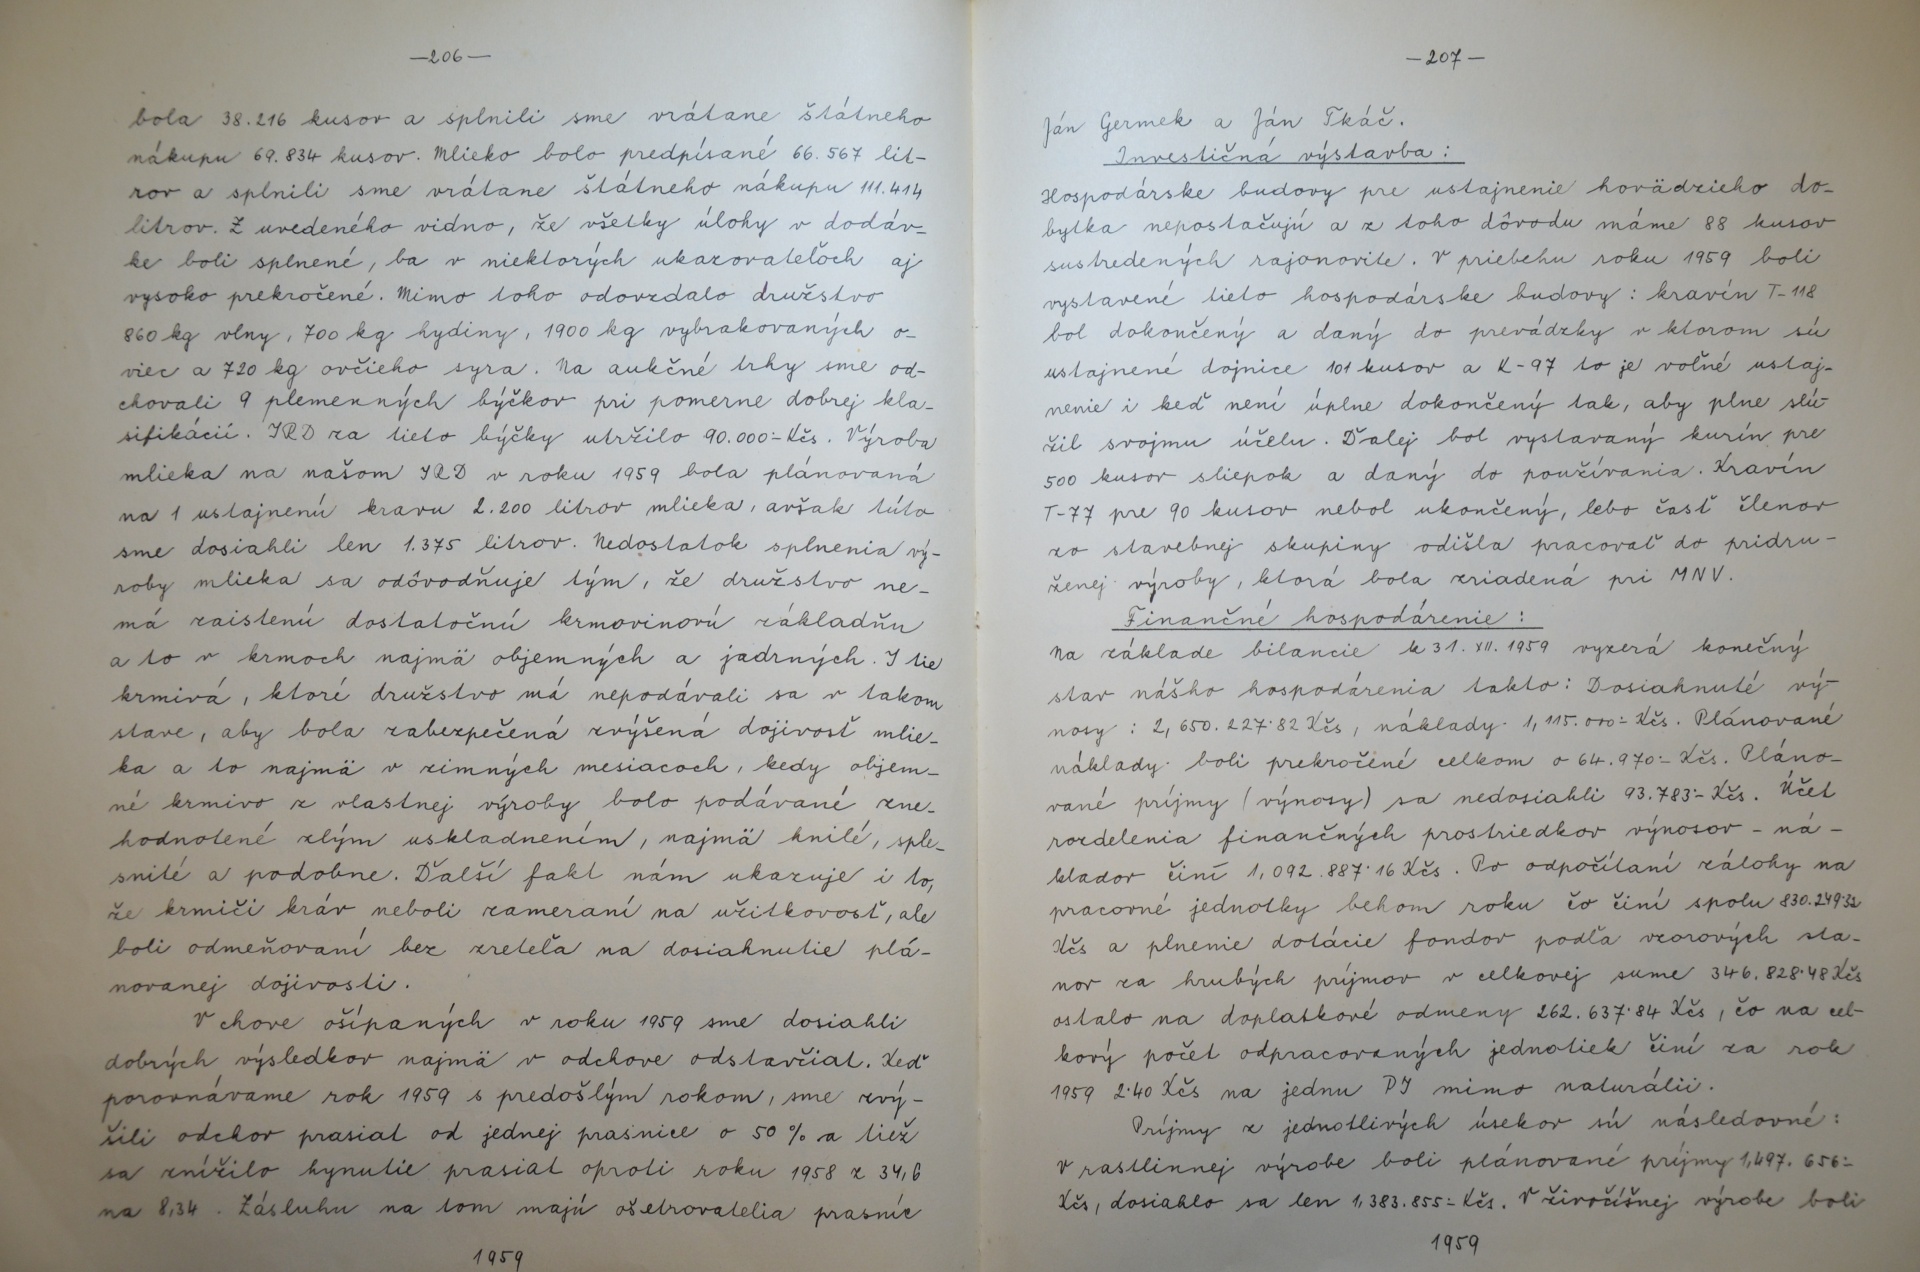 —206—
bola 38.216 kusov a splnili sme vrátane štátneho
nákupu 69.834 kusov. Mlieko bolo predpísané 66.567 lit-
rov a splnili sme vrátane štátneho nákupu 111.414
litrov. Z uvedeného vidno, že všetky úlohy v dodáv-
ke boli splnené, ba v niektorých ukazovateľoch aj
vysoko prekročené. Mimo toho odovzdalo družstvo
860 kg vlny, 700 kg hydiny, 1900 kg vybrakovaných o-
viec a 720 kg ovčieho syra. Na aukčné trhy sme od-
chovali 9 plemenných býčkov pri pomerne dobrej kla-
sifikácií. JRD za tieto býčky utržilo 90.000·- Kčs. Výroba
mlieka na našom JRD v roku 1959 bola plánovaná
na 1 ustajnenú kravu 2.200 litrov mlieka, avšak túto
sme dosiahli len 1.375 litrov. Nedostatok splnenia vý-
roby mlieka sa odôvodňuje tým, že družstvo ne-
má zaistenú dostatočnú krmovinovú základňu
a to v krmoch najmä objemných a jadrných. I tie
krmivá, ktoré družstvo má nepodávali sa v takom
stave, aby bola zabezpečená zvýšená dojivosť mlie-
ka a to najmä v zimných mesiacoch, kedy objem-
né krmivo z vlastnej výroby bolo podávané zne-
hodnotené zlým uskladnením, najmä hnilé, sple-
snité a podobne. Ďalší fakt nám ukazuje i to,
že krmiči kráv neboli zameraní na užitkovosť, ale
boli odmeňovaní bez zreteľa na dosiahnutie plá-
novanej dojivosti.
V chove ošípaných v roku 1959 sme dosiahli
dobrých výsledkov najmä v odchove odstavčiat. Keď
porovnávame rok 1959 s predošlým rokom, sme zvý-
šili odchov prasiat od jednej prasnice o 50 % a tiež
sa znížilo hynutie prasiat oproti roku 1958 z 34,6
na 8,34. Zásluhu na tom majú ošetrovatelia prasníc
1959
—207—
Ján Germek a Ján Tkáč.
Investičná výstavba:
Hospodárske budovy pre ustajnenie hovädzieho do-
bytka nepostačujú a z toho dôvodu máme 88 kusov
sustredených rajonovite. V priebehu roku 1959 boli
vystavené tieto hospodárske budovy: kravín T-118
bol dokončený a daný do prevádzky v ktorom sú
ustajnené dojnice 101 kusov a K-97 to je voľné ustaj-
nenie i keď není úplne dokončený tak, aby plne slú-
žil svojmu účelu. Ďalej bol vystavaný kurín pre
500 kusov sliepok a daný do používania. Kravín
T-77 pre 90 kusov nebol ukončený, lebo časť členov
zo stavebnej skupiny odišla pracovať do pridru-
ženej výroby, ktorá bola zriadená pri MNV.
Finančné hospodárenie:
Na základe bilancie k 31. XII. 1959 vyzerá konečný
stav nášho hospodárenia takto: Dosiahnuté vý-
nosy: 2,650.227·82 Kčs, náklady 1,115.000·- Kčs. Plánované
náklady boli prekročené celkom o 64.970·- Kčs. Pláno-
vané príjmy (výnosy) sa nedosiahli 93.783·- Kčs. Účet
rozdelenia finančných prostriedkov výnosov - ná-
kladov činí 1,092.887·16 Kčs. Po odpočítaní zálohy na
pracovné jednotky behom roku čo činí spolu 830.249·32
Kčs a plnenie dotácie fondov podľa vzorových sta-
nov za hrubých príjmov v celkovej sume 346.828·48 Kčs
ostalo na doplatkové odmeny 262.637·84 Kčs, čo na cel-
kový počet odpracovaných jednotiek činí za rok
1959 2·40 Kčs na jednu PJ mimo naturálií.
Príjmy z jednotlivých úsekov sú následovné:
V rastlinnej výrobe boli plánované príjmy 1,497.656·-
Kčs, dosiahlo sa len 1,383.855·- Kčs. V živočíšnej výrobe boli
1959